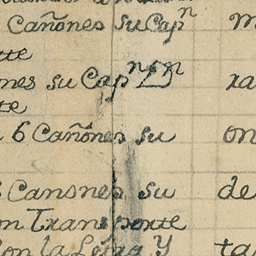 Cañones su Capn m
tte
nes su Capn Dn ra
te
6 Cañones su on
Canones su de
n Transporte
on la Letra Y ta